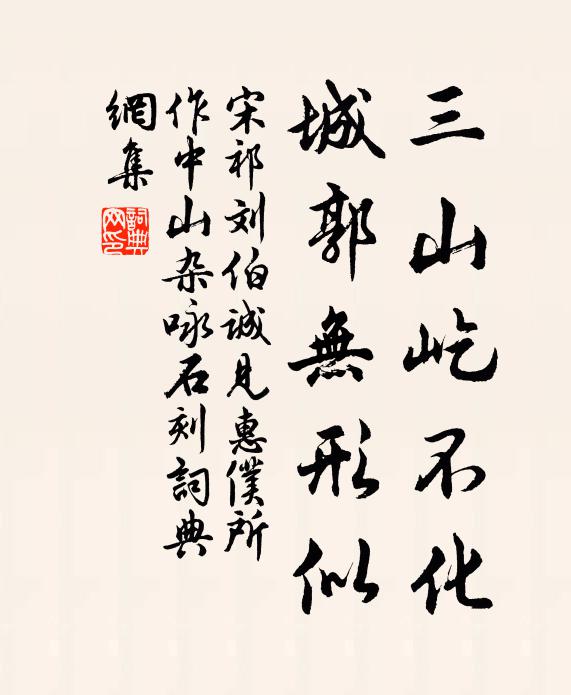 三山屹不化
城郭無形似
宋祁刘伯誠見惠僕所
作中山杂咏石刻詞典
網集
詞典網印